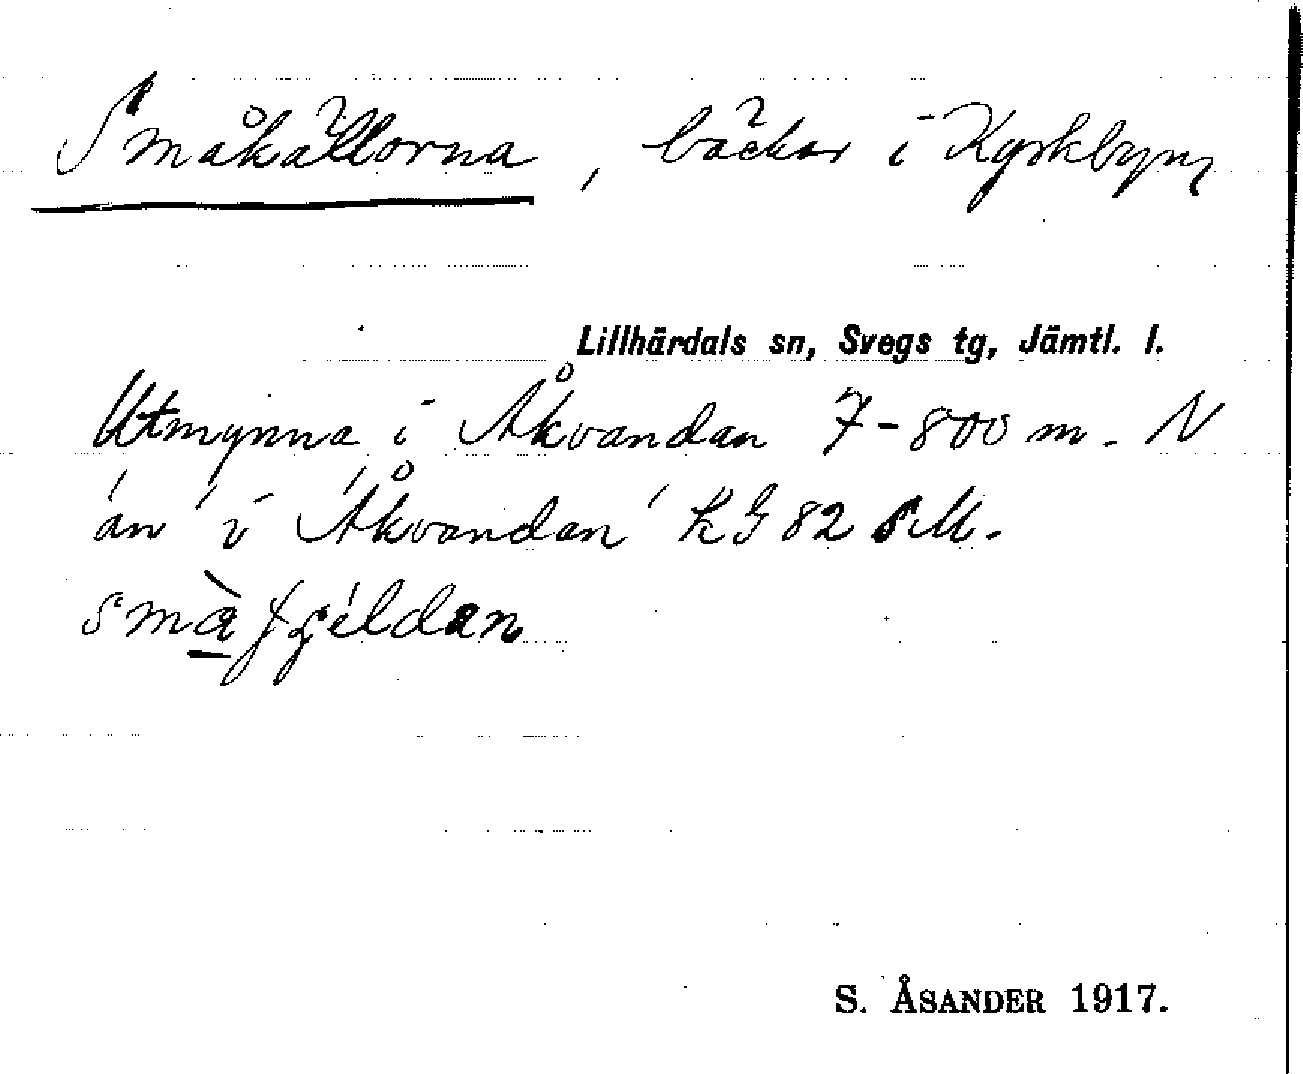 Småkällorna, bäckar i Kyrkbyn
Lillhärdals sn, Svegs tg, Jämtl. l.
Utmynna i Åkvandan 7-800 m. N
än 'i 'Åkvandan' KG 82 SM.
småfjéldan
S. ÅSANDER 1917.